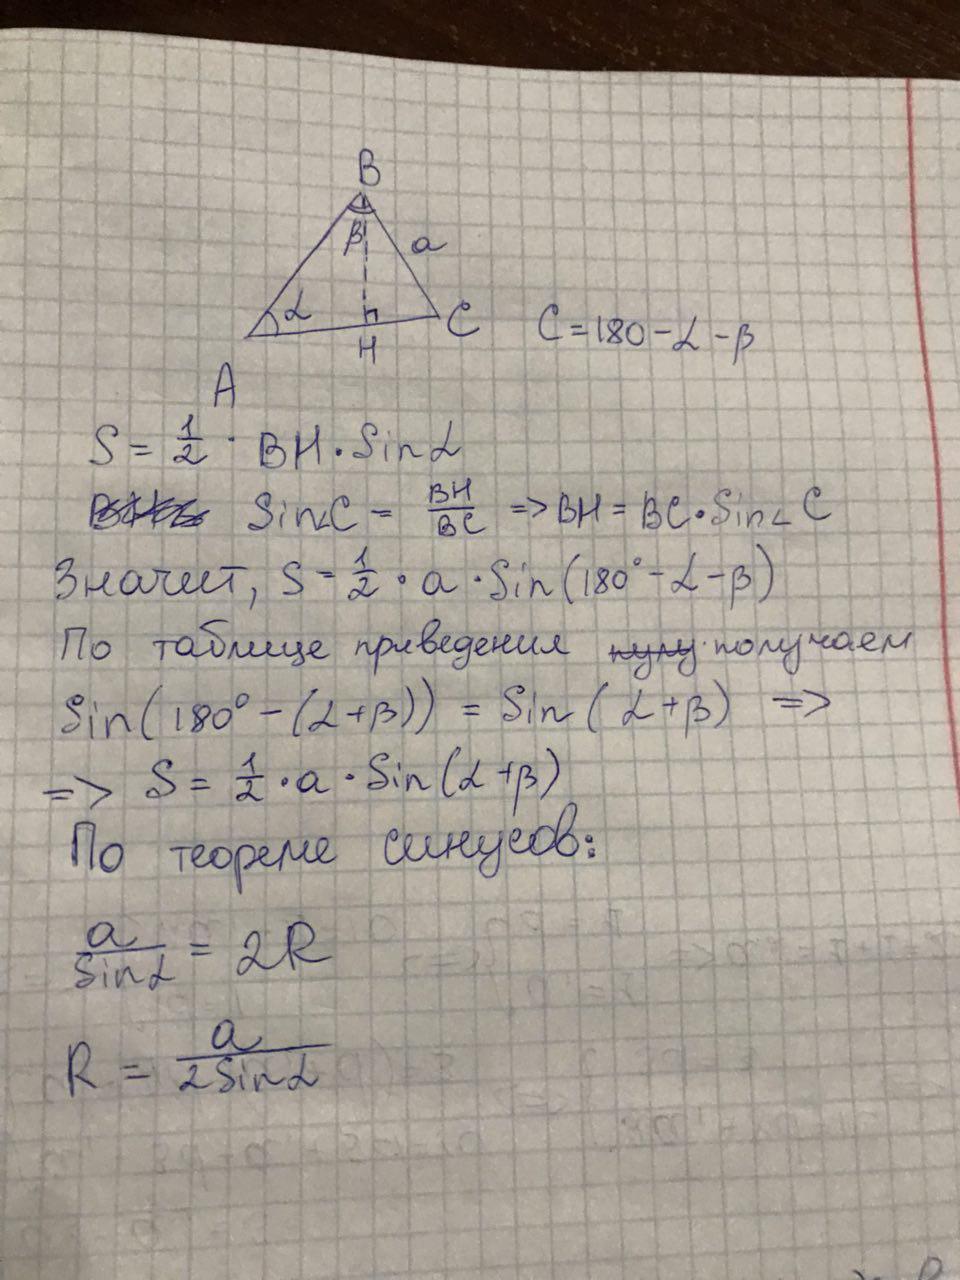 B
β a
α
C C = 180 - α - β
H
A
S = 1/2 · BH · Sin α
Sin∠C = BH/BC => BH = BC · Sin∠C
Значит, S = 1/2 · a · Sin(180° - α - β)
По таблице приведения получаем
Sin(180° - (α + β)) = Sin(α + β) =>
=> S = 1/2 · a · Sin(α + β)
По теореме синусов:
a/Sin α = 2R
R = a/2Sin α